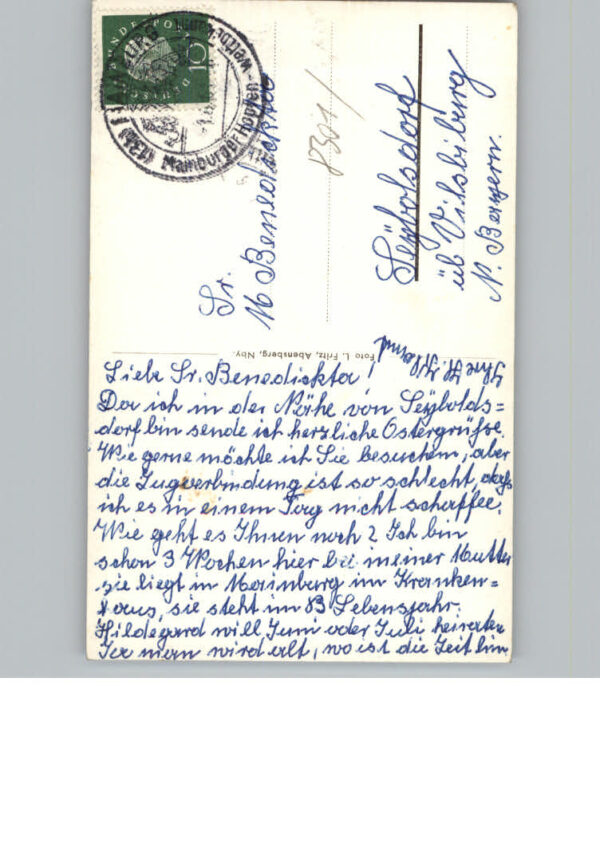 DEUTSCHE BUNDESPOST
10
(13b) MAINBURG
Mainburger Hopfen - weltbekannt
8301/
Sr.
M Benedickta
Seÿbolsdorf
üb Vilsbiburg
N. Bayern.
Foto L. Fritz, Abensberg, Nby.
Liebe Sr. Benedickta!
Da ich in der Nähe von Seÿbolds=
dorf bin sende ich herzliche Ostergrüsse.
Wie gerne möchte ich Sie besuchen, aber
die Zugverbindung ist so schlecht, dass
ich es in einem Tag nicht schaffe.
Wie geht es Ihnen noch? Ich bin
schon 3 Wochen hier bei meiner Mutter
sie liegt in Mainburg im Kranken=
haus, sie steht im 83 Lebensjahr.
Hildegard will Juni oder Juli heiraten
Ja man wird alt, wo ist die Zeit hin
Ihre Fr.